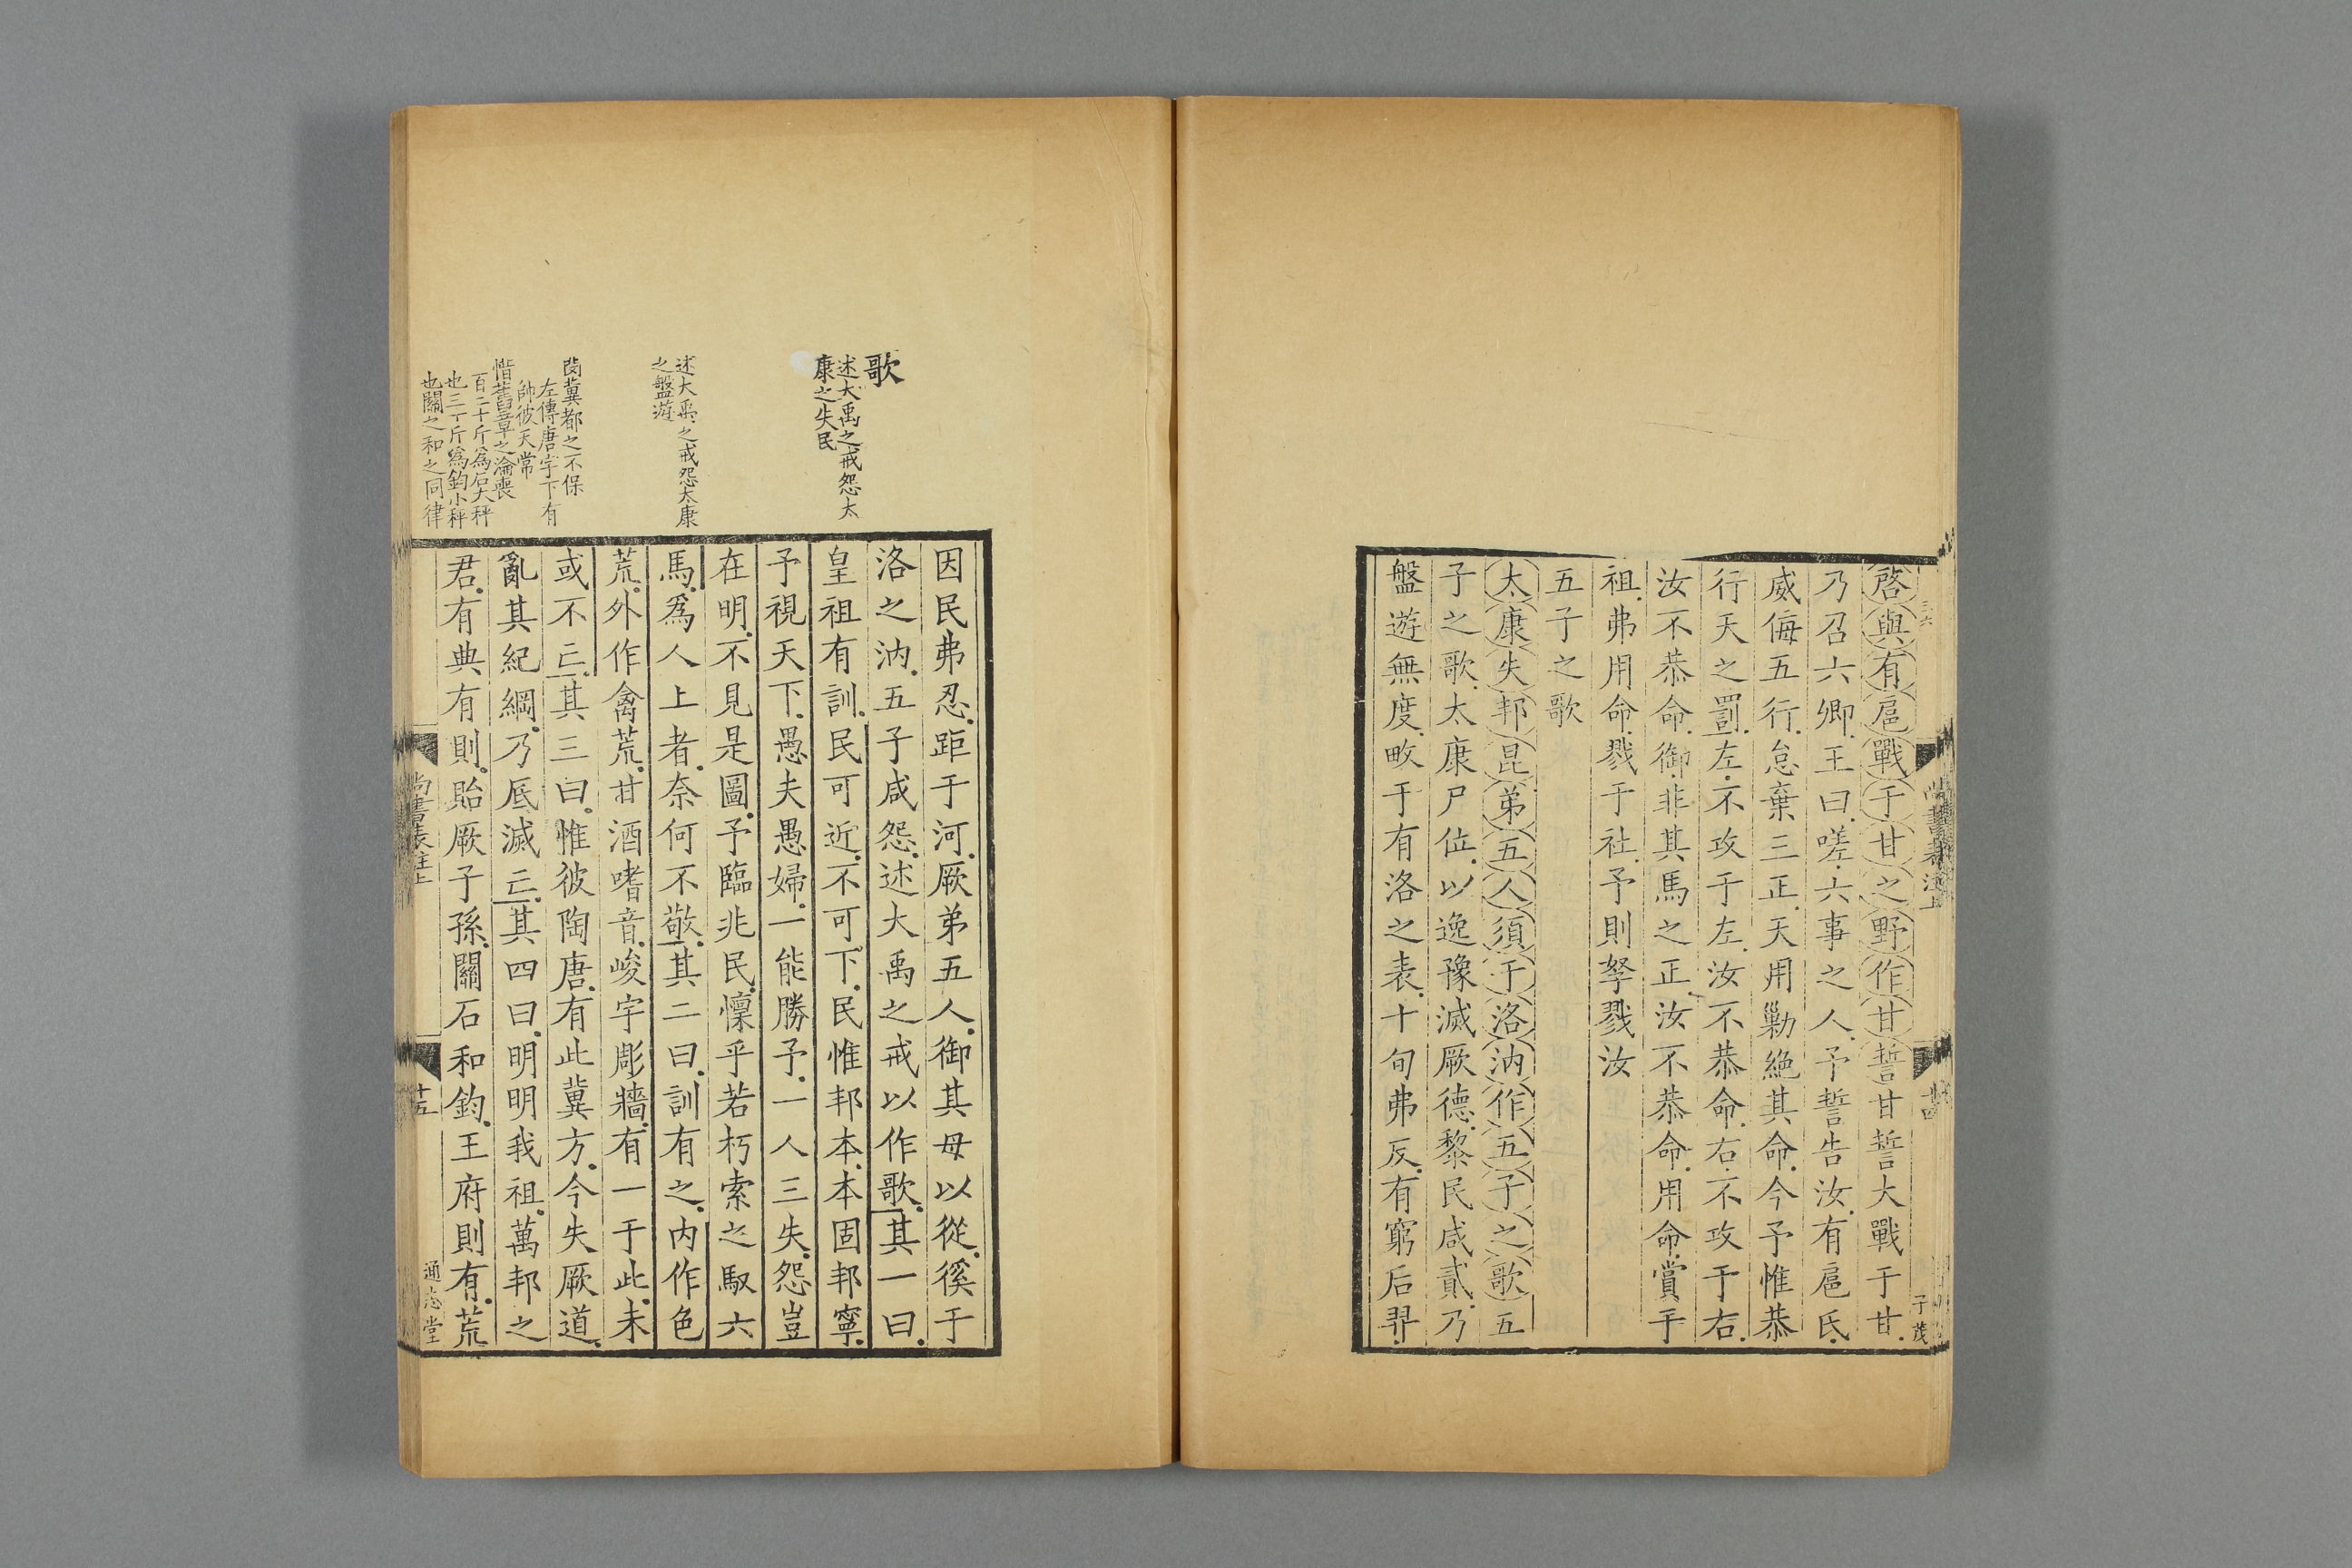 啓與有扈戰于甘之野作甘誓甘誓大戰于甘
乃召六卿王曰嗟六事之人予誓告汝有扈氏
威侮五行怠棄三正天用勦絶其命今予惟恭
行天之罰左不攻于左汝不恭命右不攻于右
汝不恭命御非其馬之正汝不恭命用命賞于
祖弗用命戮于社予則孥戮汝
五子之歌
太康失邦昆弟五人須于洛汭作五子之歌五
子之歌太康尸位以逸豫滅厥德黎民咸貳乃
盤遊無度畋于有洛之表十旬弗反有窮后羿
子茂
歌
述大禹之戒怨太
康之失民
述大禹之戒怨太康
之盤遊
閔冀都之不保
左傳唐字下有
帥彼天常
惜舊章之淪喪
百二十斤為石大秤
也三十斤為鈞小秤
也關之和之同律
因民弗忍距于河厥弟五人御其母以從徯于
洛之汭五子咸怨述大禹之戒以作歌其一曰
皇祖有訓民可近不可下民惟邦本本固邦寧
予視天下愚夫愚婦一能勝予一人三失怨豈
在明不見是圖予臨兆民懍乎若朽索之馭六
馬爲人上者奈何不敬其二曰訓有之内作色
荒外作禽荒甘酒嗜音峻宇彫牆有一于此未
或不亡其三曰惟彼陶唐有此冀方今失厥道
亂其紀綱乃厎滅亡其四曰明明我祖萬邦之
君有典有則貽厥子孫關石和鈞王府則有荒
尚書表注上
十五
通志堂